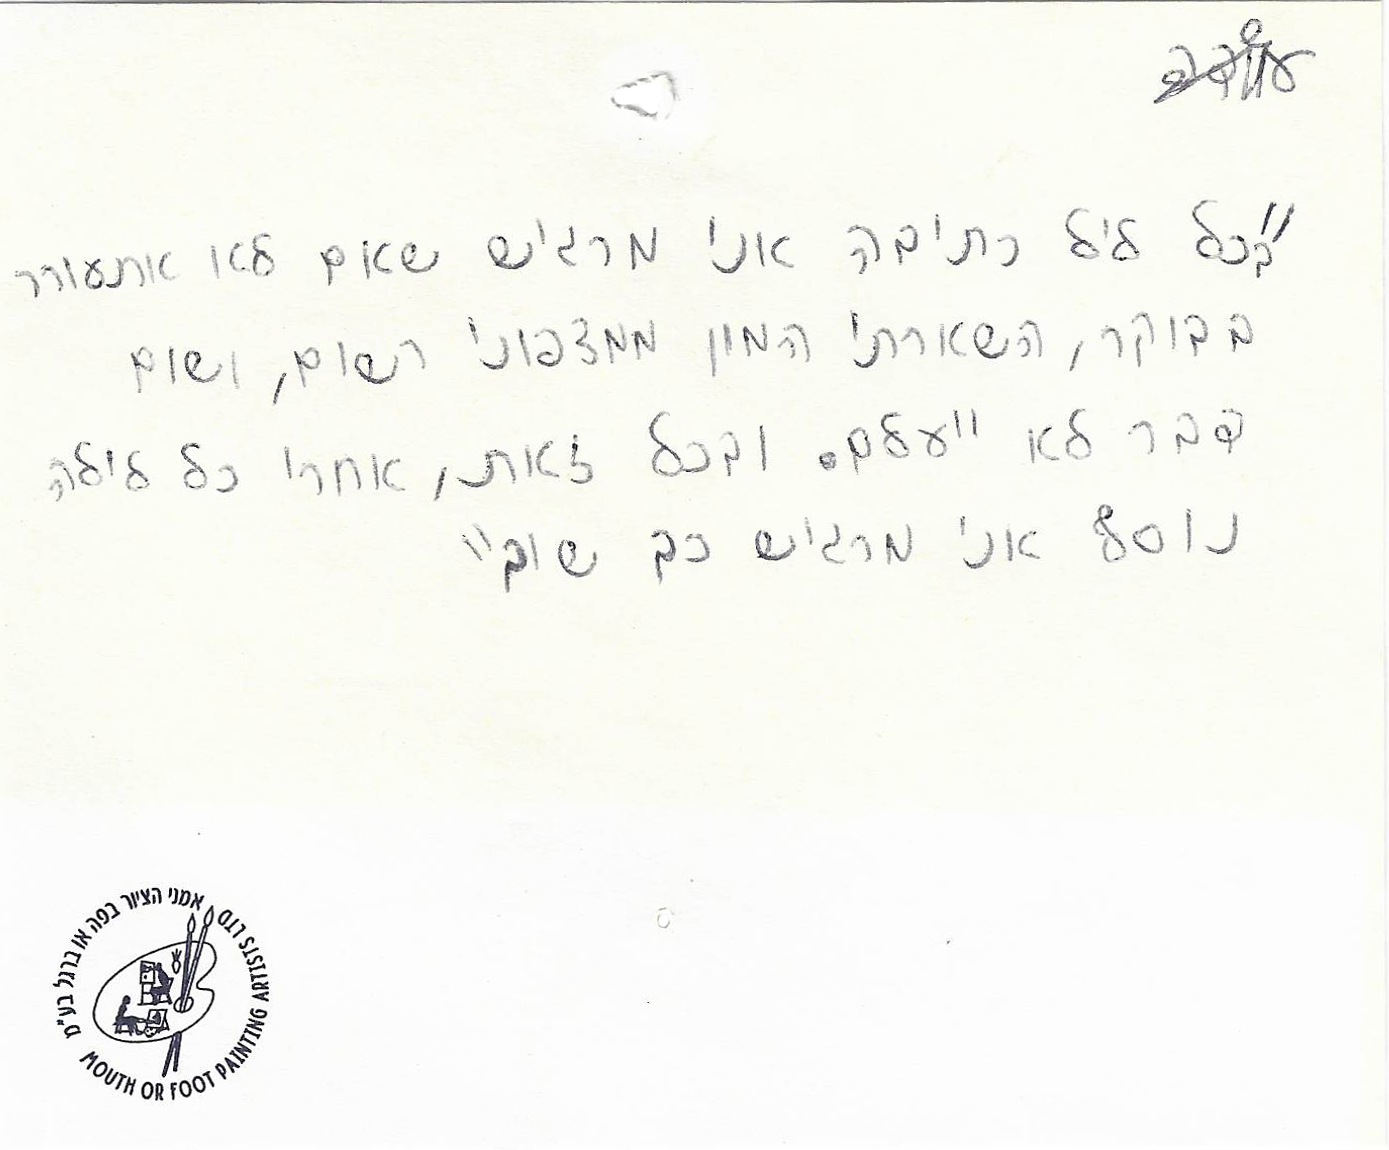 "בכל ליל כתיבה אני מרגיש שאם לא אתעורר
בבוקר, השארתי המון ממצפוני רשום, ושום
דבר לא ייעלם. ובכל זאת, אחרי כל לילה
נוסף אני מרגיש כך שוב"
אמני הציור בפה או ברגל בע"מ
MOUTH OR FOOT PAINTING ARTISTS LTD